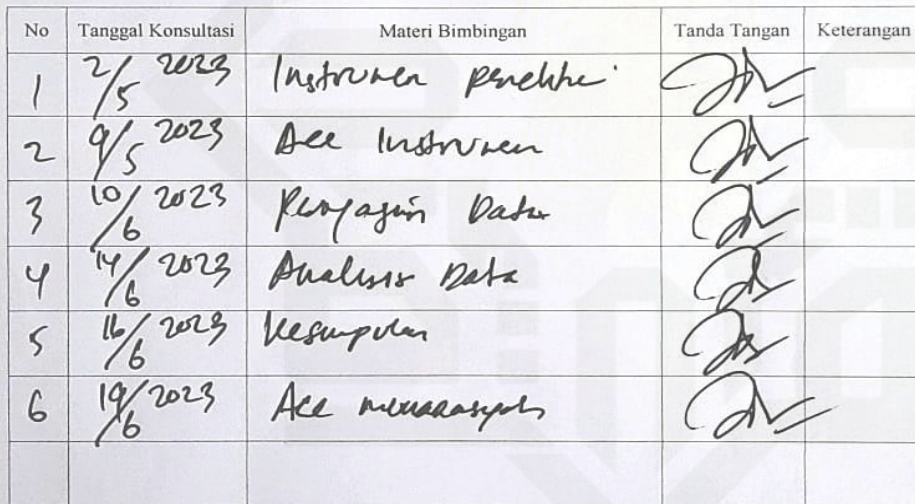 No Tanggal Konsultasi Materi Bimbingan Tanda Tangan Keterangan
1 2/5 2023 Instrumen penelitian
2 9/5 2023 Acc Instrumen
3 10/6 2023 Penyajian Data
4 14/6 2023 Analisis Data
5 16/6 2023 Kesimpulan
6 19/6 2023 Acc